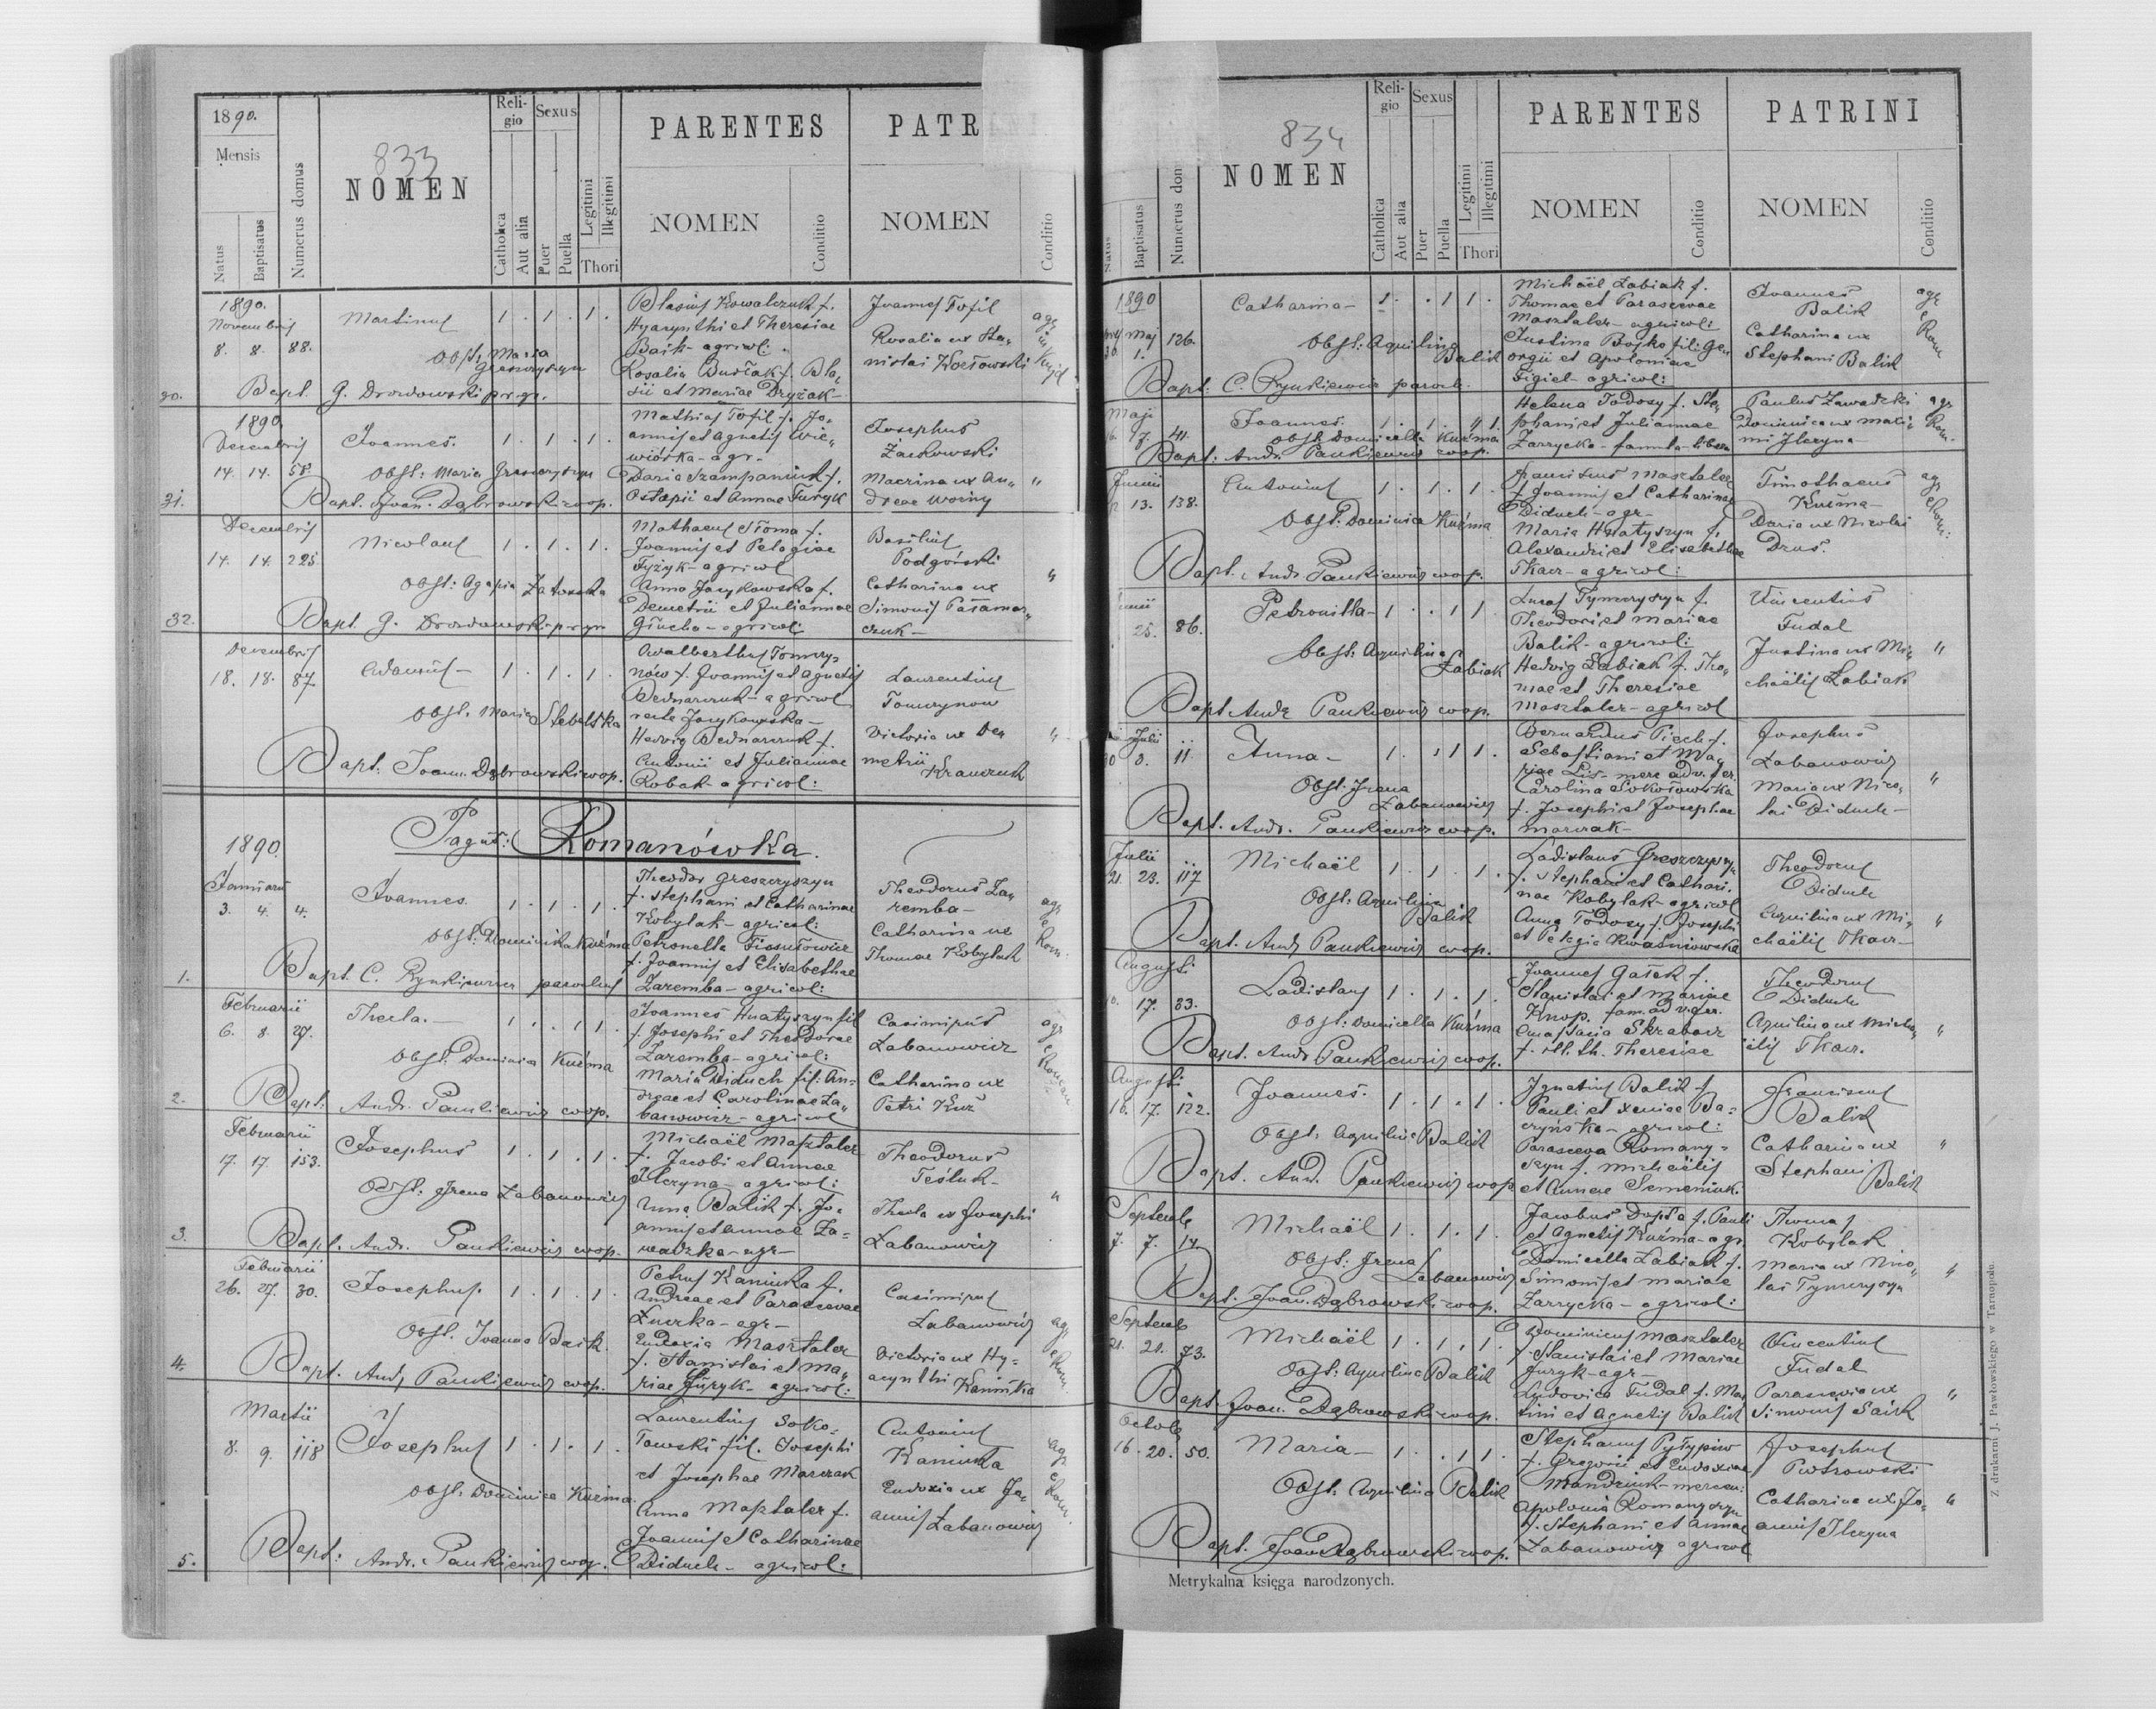 1890.
Mensis
Natus
Baptisatus
Numerus domus
833
NOMEN
Religio
Catholica
Aut alia
Sexus
Puer
Puella
Legitimi
Illegitimi
Thori
PARENTES
NOMEN
Conditio
PATR
NOMEN
Conditio
1890.
Novembris
8. 8. 88.
Martinus 1 . 1 . 1 .
Obst. Maria
Greszczyszyn
Bapt. G. Drozdowski
Blasius Kowalczuk f.
Hyacynthi et Theresiae
Baik - agricol:
Rosalia f. Bla„
sii et Mariae Dryzak -
Joannes Tofil
Rosalia ux Sta„
nislai Kozłowski
1890.
Decembris
14. 14. 58.
Joannes. 1 . 1 . 1 .
Obst: Maria Greszczyszyn
31. Bapt. Joan. Dąbrowski coop.
Mathias Tofil f. Jo„
annis et Agnetis Wie„
wiórka - agr -
Daria Szampaniuk f.
Ostapii et Annae Furyk
Josephus
Żarkowski
Macrina ux An„
dreae Worny "
Decembris
14. 14. 225.
Nicolaus 1 . 1 . 1 .
Obst: Agapia Zatorska
32. Bapt. G. Drozdowski
Mathaeus Słoma f.
Joannis et Pelagiae
Tyżyk - agricol
Anna Jarykowska f.
Demetrii et Juliannae
Głucha - agricol:
Basilius
Podgórski
Catharina ux
Simonis Pałamar„
czuk - "
Decembris
18. 18. 87.
Adamus - 1 . 1 . 1 .
Obst. Maria Stebelska
Bapt. Joann. Dąbrowski coop.
Adalberthus Tomczy„
nów f. Joannis et Agnetis
Bednarczuk - agricol
Hedvig Bednarczuk f.
Antonii et Juliannae
Robak - agricol:
Laurentius
Tomczynow
Victoria ux De„
metrii
Krawczuk "
1890. Pagus: Romanówka.
Januarii
3. 4. 4.
Joannes. 1 . 1 . 1 .
Obst: Dominika Kuźma
1. Bapt. C. Rynkiewicz parochus
Theodor Greszczyszyn
f. Stephani et Catharinae
Kobylak - agricol:
Petronella
f. Joannis et Elisabethae
Zaremba - agricol:
Theodorus Za„
remba -
Catharina ux
Thomae Kobylak
Februarii
6. 8. 27.
Thecla. - 1 . . 1 1 .
Obst: Dominica Kuźma
2. Bapt. Andr. Pankiewicz coop.
Joannes Hnatyszyn fil
f. Josephi et Theodorae
Zaremba - agricol:
Maria Diduch fil: An=
dreae et Carolinae Ła„
banowicz - agricol
Casimirus
Łabanowicz
Catharina ux
Petri Kuź
Februarii
17. 17. 153.
Josephus 1 . 1 . 1 .
Obst. Irena Łabanowicz
3. Bapt. Andr. Pankiewicz coop.
Michaël Masztaler
f. Jacobi et Annae
Ilczyna - agricol:
Anna Balik f. Jo„
annis et Annae Za=
wadzka - agr -
Theodorus
Teśluk -
Thecla ux Josephi
Łabanowicz "
Februarii
26. 27. 30.
Josephus. 1 . 1 . 1 .
Obst. Joanna Baik.
4. Bapt. Andr. Pankiewicz coop.
Petrus Kaminka f.
Andreae et Parascevae
Łuczka - agr -
Eudoxia Masztaler
f. Stanislai et Ma„
riae Juryk - agricol:
Casimirus
Łabanowicz
Victoria ux Hy=
acynthi Kaminka
Martii
8. 9. 118
Josephus 1 . 1 . 1 .
Obst. Dominica Kuźma.
5. Bapt: Andr. Pankiewicz coop.
Laurentius Soko„
łowski fil. Josephi
et Josephae Marczak
Anna Masztaler f.
Joannis et Catharinae
Diduch - agricol:
Antonius
Kaminka
Eudoxia ux Jo„
annis Łabanowicz
Natus
Baptisatus
Numerus dom
834
NOMEN
Religio
Catholica
Aut alia
Sexus
Puer
Puella
Legitimi
Illegitimi
Thori
PARENTES
NOMEN
Conditio
PATRINI
NOMEN
Conditio
1890
Maj
30. 1. 126.
Catharina - 1 . . 1 1 .
Obst: Aquilina
Balik
Bapt: C. Rynkiewicz paroch.
Michaël Łabiak f.
Thomae et Parascevae
Masztaler - agricol:
Justina Bojko fil: Ge„
orgii et Apoloniae
Figiel - agricol:
Joannes
Balik
Catharina ux
Stephani Balik
Maji
6. 7. 41.
Joannes. 1 . 1 .
Obst. Domicella Kuźma
Bapt: Andr. Pankiewicz coop.
Helena Todosy f. Ste„
phani et Juliannae
Zarzycka - famula
Paulus Zawadzki
Dominica ux Maxi„
mi Ilczyna
Junii
13. 138.
Antonius 1 . 1 . 1 .
Obst: Dominica Kuźma
Bapt. Andr. Pankiewicz coop.
Franciscus Masztaler
f. Joannis et Catharinae
Diduch - agr -
Maria Hnatyszyn f.
Alexandri et Elisabethae
Tkacz - agricol:
Timothaeus
Kuźma -
Daria ux Nicolai
Drus.
25. 86.
Petronilla - 1 . . 1 1
Obst: Aquilina
Łabiak
Bapt. Andr. Pankiewicz coop.
Lucas Tymczyszyn f.
Theodori et Mariae
Balik - agricol:
Hedvig Łabiak f. Tho„
mae et Theresiae
Masztaler - agricol
Vincentius
Fudal
Justina ux Mi„
chaëlis Łabiak "
Julii
11
Anna - 1 . . 1 1 .
Obst. Irena
Łabanowicz
Bapt. Andr. Pankiewicz coop.
Bernardus Piech f.
Sebastiani et Ma„
riae Lis -
Carolina Sokołowska
f. Josephi et Josephae
Marczak -
Josephus
Łabanowicz
Maria ux Nico„
lai Diduch - "
Julii
21. 23. 117
Michaël 1 . 1 . 1 .
Obst. Aquilina
Balik
Bapt. Andr. Pankiewicz coop.
Ladislaus Greszczyszyn
f. Stephani et Cathari.
nae Kobylak - agricol
Anna Todosy f. Josephi
et Pelagia Kwaśniowska
Theodorus
Diduch
Aquilina ux Mi„
chaëlis Tkacz - "
Augusti
17. 33.
Ladislaus 1 . 1 . 1 .
Obst: Domicella Kuźma
Bapt. Andr. Pankiewicz coop.
Joannes Gałek f.
Stanislai et Mariae
Knop.
Anastasia Skrabacz
f. Theresiae
Theodorus
Diduch
Aquilina ux Micha„
ëlis Tkacz. "
Augusti
16. 17. 122.
Joannes. 1 . 1 . 1 .
Obst: Aquilina Balik
Bapt. And. Pankiewicz coop
Ignatius Balik f.
Pauli et Xeniae Ba=
czyńska - agricol:
Parasceva Romany=
szyn f. Michaëlis
et Annae Semeniuk.
Franciscus
Balik
Catharina ux
Stephani
Balik "
Septemb
7. 7. 14.
Michaël 1 . 1 . 1 .
Obst: Irena
Łabanowicz
Bapt. Joan. Dąbrowski coop.
Jacobus Dopta f. Pauli
et Agnetis Kuźma - agr
Domicella Łabiak f.
Simonis et Mariae
Zarzycka - agricol:
Thomas
Kobylak
Maria ux Nico„
lai Tymczyszyn "
Septemb
21. 21. 73.
Michaël 1 . 1 . 1 .
Obst: Aquilina Balik
Bapt. Joan. Dąbrowski coop.
Dominicus Masztaler
f. Stanislai et Mariae
Juryk - agr -
Ludovica Fudal f. Mar
tini et Agnetis Balik
Vincentius
Fudal
Parascevia ux
Simonis Saik "
Octob
16. 20. 50.
Maria - 1 . . 1 1 .
Obst. Aquilina Balik
Bapt. Joan Dąbrowski coop.
Stephanus Pyłypiw
f. Gregorii et Eudoxiae
Mandziuk - mercen:
Apolonia Romanyszyn
f. Stephani et Annae
Łabanowicz agricol
Josephus
Piotrowski
Catharina ux Jo„
annis Ilczyna "
Metrykalna księga narodzonych.
Z drukarni J. Pawłowskiego w Tarnopolu.